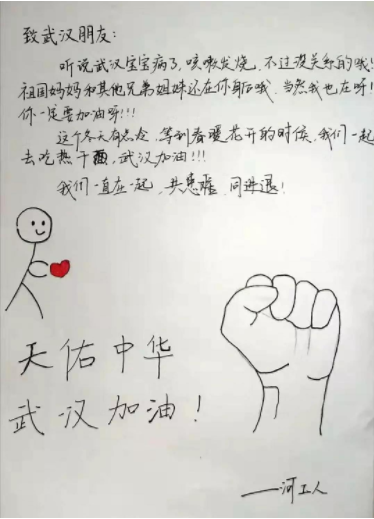 致武汉朋友：
听说武汉宝宝病了，咳嗽发烧，不过没关系的哦！
祖国妈妈和其他兄弟姐妹还在你身后哦，当然我也在呀！
你一定要加油呀!!!
这个冬天有点冷，等到春暖花开的时候，我们一起
去吃热干面，武汉加油!!!
我们一直在一起，共患难，同进退！
天佑中华
武汉加油！
——河工人